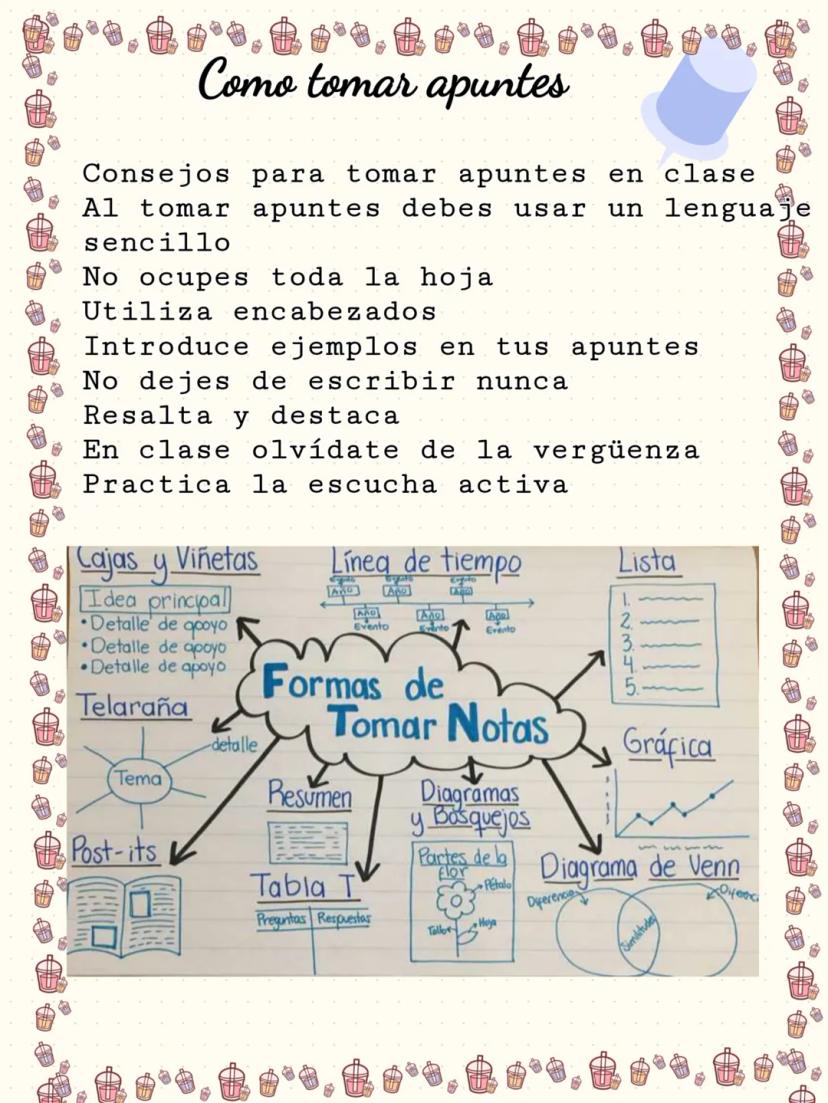 Como tomar apuntes
Consejos para tomar apuntes en clase
Al tomar apuntes debes usar un lenguaje
sencillo
No ocupes toda la hoja
Utiliza encabezados
Introduce ejemplos en tus apuntes
No dejes de escribir nunca
Resalta y destaca
En clase olvídate de la vergüenza
Practica la escucha activa
Cajas y Viñetas
Idea principal
• Detalle de apoyo
• Detalle de apoyo
• Detalle de apoyo
Línea de tiempo
Evento Evento Evento
Año Año Año
Año Año Año
Evento Evento Evento
Lista
1.
2.
3.
4.
5.
Formas de
Tomar Notas
Telaraña
detalle
Tema
Gráfica
Post-its
Resumen
Diagramas
y Bosquejos
Partes de la
flor
Pétalo
Tallo
Hoja
Tabla T
Preguntas Respuestas
Diagrama de Venn
Diferencia
Similitudes